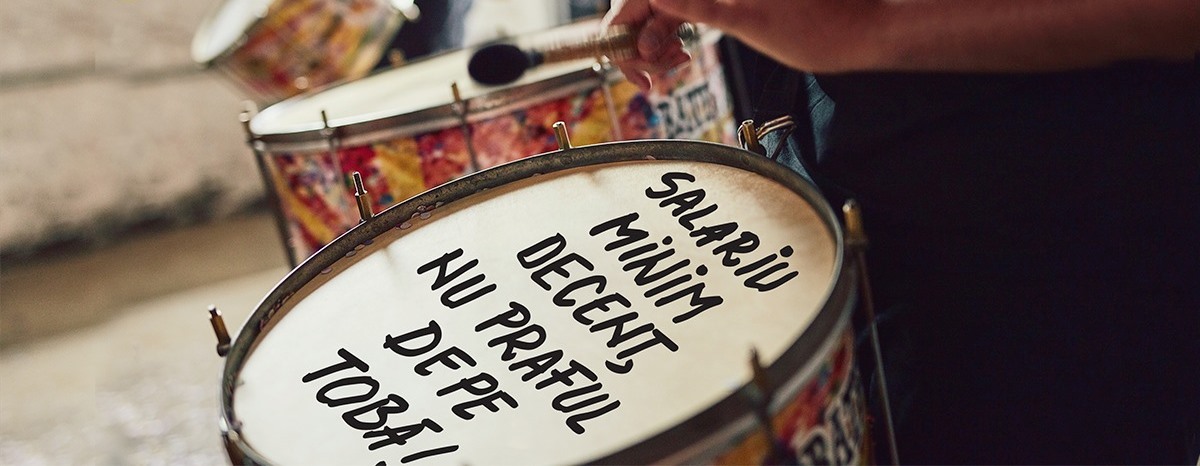 SALARIU
MINIM
DECENT,
NU PRAFUL
DE PE
TOBĂ!